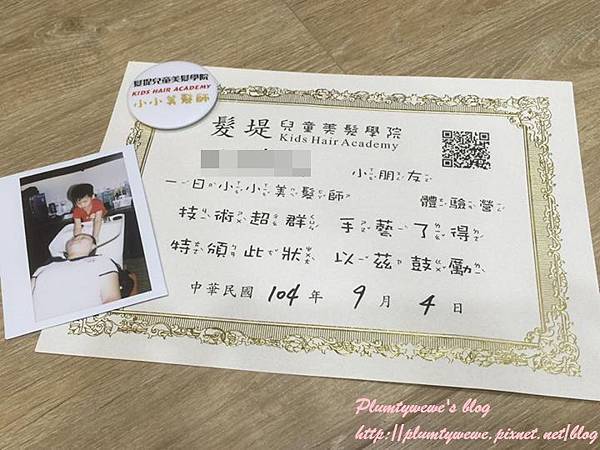 髮堤兒童美髮學院
KIDS HAIR ACADEMY
小小美髮師
髮堤兒童美髮學院
Kids Hair Academy
小朋友
一日小小美髮師 體驗營
技術超群 手藝了得
特頒此狀 以茲鼓勵
中華民國 104 年 9 月 4 日
Plumtywewe's blog
http://plumtywewe.pixnet.net/blog